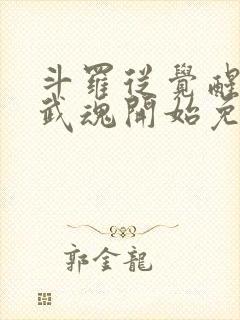 斗羅從覺醒
武魂開始免
郭金龍